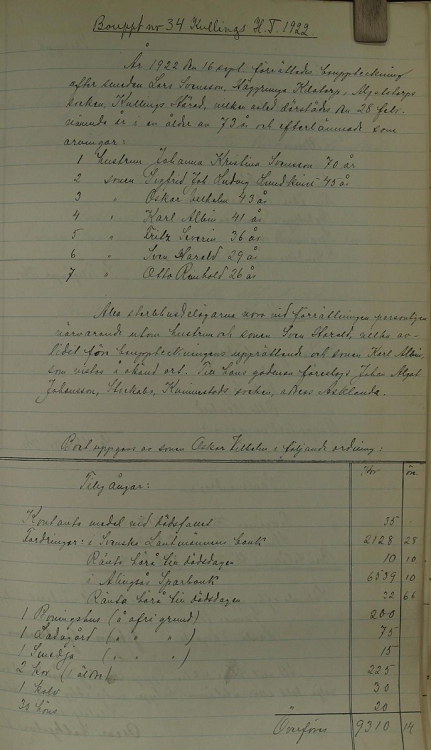 Bouppt no 34 Kullings H.T. 1922
År 1922 den 16 sept. förrättades bouppteckning
efter smeden Lars Svensson, Häggrunga Klatorp, Algutstorps
socken, Kullings Härad, vilken avled därstädes den 28 febr.
nämnda år i en ålder av 73 år och efterlämnade som
arvingar:
1 hustrun Johanna Kristina Svensson 70 år
2 sonen Sigfrid Joh. Ludvig 45 år
3 " Oskar Vilhelm 43 år
4 " Karl Albin 41 år
5 " Fritz Severin 36 år
6 " Sven Harald 29 år
7 " Otto Reinhold 26 år
Alla sterbhusdelägarna voro vid förrättningen personligen
närvarande utom hustrun och sonen Sven Harald, vilka av-
lidit före bouppteckningens upprättand och sonen Karl Albin
som vistas å okänd ort. Till hans godman föreslogs Johan Algot
Johansson, Kvinnestads socken, adress Asklanda.
Boet uppgavs av sonen Oskar Vilhelm i följande ordning:
Kr öre
Tillgångar:
Kontanta medel vid dödsfallet 35
Fordringar: i Svenska Lantmännens bank 2128 28
Ränta härå till dödsdagen 10 10
i Alingsås Sparbank 6539 10
Ränta härå till dödsdagen 32 66
1 Boningshus (å ofri grund) 200
1 Ladugård ( " " " ) 75
1 Smedja ( " " " ) 15
2 kor (äldre) 225
1 kalv 30
höns 20
Överföres 9310 14